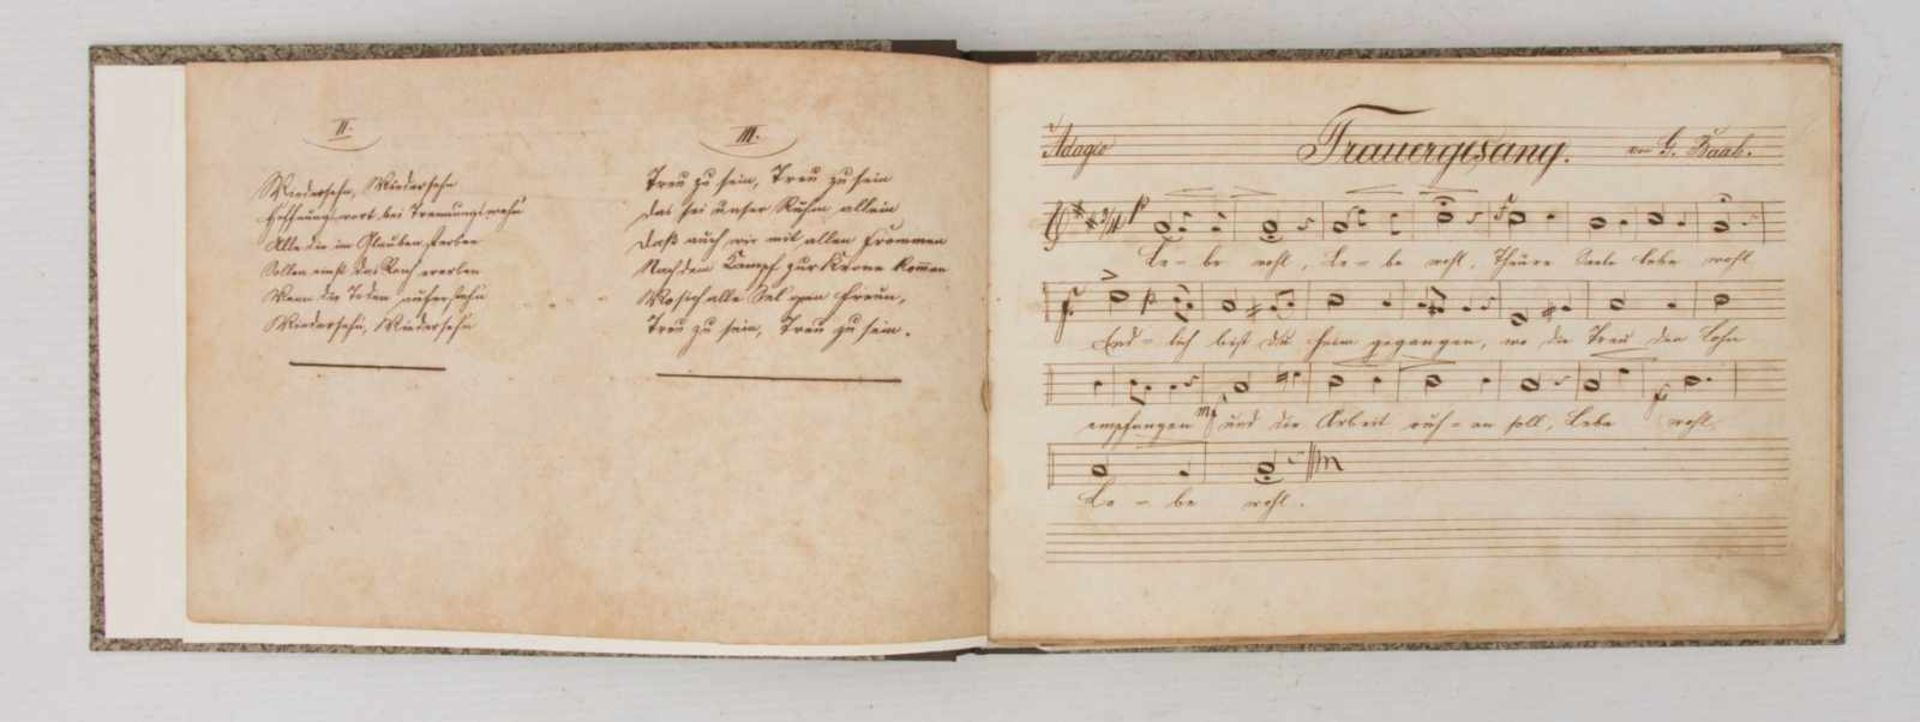 II.
Wiedersehn, Wiedersehn
Hoffnungswort bei Trennungswehn
Alle die im Glauben sterben
Sollen einst das Reich ererben
Wenn die Toden auferstehn
Wiedersehn, Wiedersehn
III.
Treu zu sein, Treu zu sein
Das sei unser Ruhm allein
Daß auch wir mit allen Frommen
Nach dem Kampf zur Krone kommen
Wo sich alle Sel'gen freun,
Treu zu sein, Treu zu sein.
Adagio Trauergesang. von G.
3/4 p
Le - be wohl, Le - be wohl, Theure Seele lebe wohl
f p
End - lich bist du heim gegangen, wo die Treu den Lohn
empfangen mf und die Arbeit ruh - en soll, Lebe wohl
Le - be wohl.